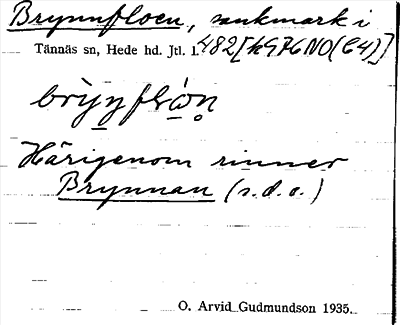 Brynnfloen, sankmark i
Tännäs sn, Hede hd. Jtl. l. 482[h976NO(C4)]
brỳnflòn
Härigenom rinner
Brynnan (s.d.o.)
O. Arvid Gudmundson 1935.